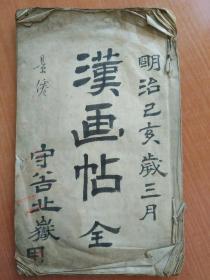 明治己亥歳三月
漢画帖 全
守谷北嶽